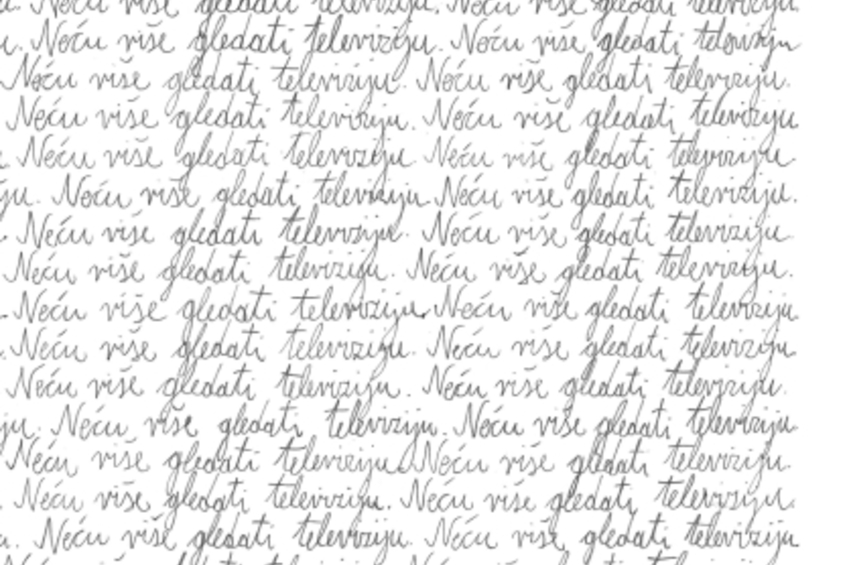 Neću više gledati televiziju. Neću više gledati televiziju
u. Neću više gledati televiziju. Neću više gledati televiziju
Neću više gledati televiziju. Neću više gledati televiziju.
Neću više gledati televiziju. Neću više gledati televiziju
Neću više gledati televiziju. Neću više gledati televiziju.
ju. Neću više gledati televiziju. Neću više gledati televiziju.
Neću više gledati televiziju. Neću više gledati televiziju.
Neću više gledati televiziju. Neću više gledati televiziju.
Neću više gledati televiziju. Neću više gledati televiziju.
Neću više gledati televiziju. Neću više gledati televiziju.
Neću više gledati televiziju. Neću više gledati televiziju.
ju. Neću više gledati televiziju. Neću više gledati televiziju.
Neću više gledati televiziju. Neću više gledati televiziju.
Neću više gledati televiziju. Neću više gledati televiziju.
u. Neću više gledati televiziju. Neću više gledati televiziju